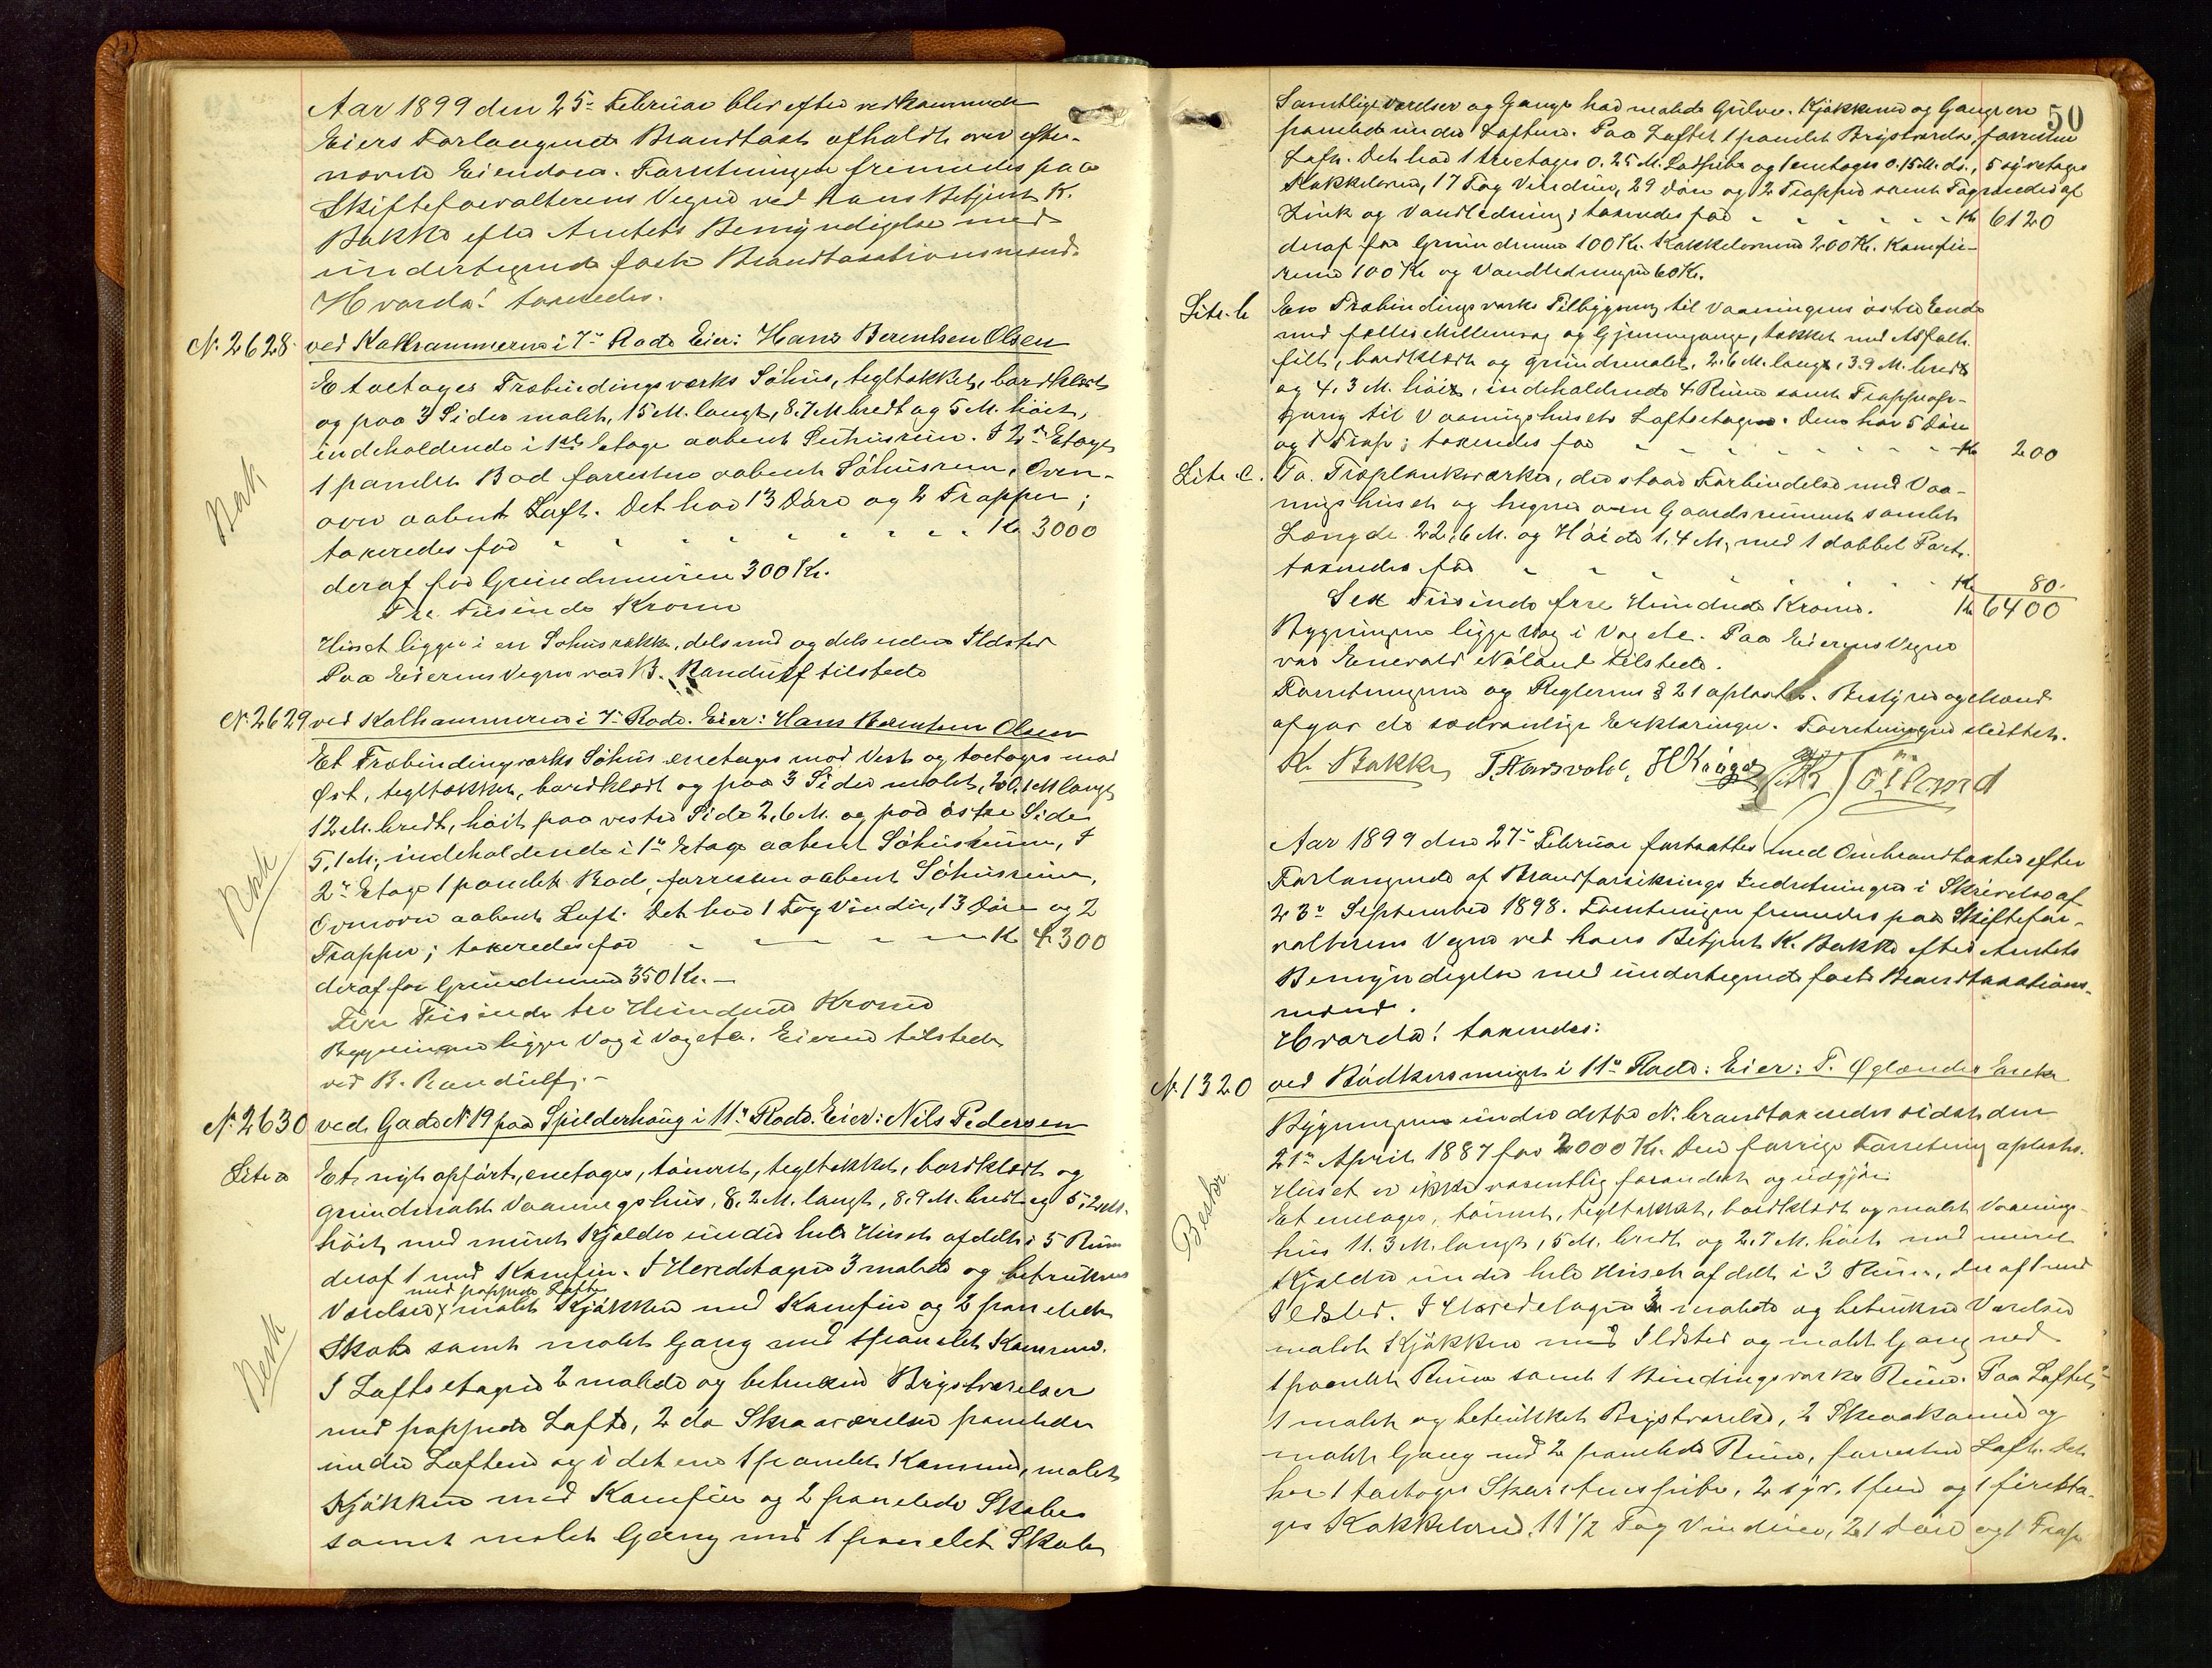 Aar 1899 den 25de Februar blev efter vedkommende
Eiers Forlangende Brandtaxt afholdt over efter-
nævnte Eiendom. Forretningen fremmedes paa
Skifteforvalterens Vegne ved hans Betjent K.
Bakke efter Amtets Bemyndigelse med
undertegnede faste Brandtaxationsmænd.
Hvorda! taxeredes.
No 2628 ved Kalhammeren i 7de Rode. Eier: Hans Berentsen Olsen
Et toetages Træbindingsværks Söhus, tegltækket, bordklædt
og paa 3 Sider malet, 15 M. langt, 8,7 M bredt og 5 M. höit,
indeholdende i 1ste Etage aabent Söhusrum. I 2den Etage
1 panelet Bod forresten aabent Söhusrum. Oven-
over aabent Loft. Det har 13 Döre og 2 Trapper;
taxeredes for Kr 3000
deraf for Grundmuren 300 Kr.
Tre Tusinde Kroner
Huset ligger i en Söhusrække, dels med og dels uden Ildsted
Paa Eierens Vegne var B. Randulf tilstede
Besk
No 2629 ved Kalhammeren i 7de Rode. Eier: Hans Berentsen Olsen
Et Træbindingsværks Söhus enetages mod Vest og toetages mod
Øst, tegltækket, bordklædt og paa 3 Sider malet, 20,1 M langt
12 M. bredt, höit paa vestre Side 2,6 M. og paa östre Side
5,1 M, indeholdende i 1ste Etage aabent Söhusrum, I
2den Etage 1 panelet Bod, forresten aabent Söhusrum,
Ovenover aabent Loft. Det har 1 Fag Vinduer, 13 Döre og 2
Trapper; taxeredes for Kr 4300
deraf for Grundmuren 350 Kr. —
Fire Tusinde tre Hundrede Kroner
Bygningerne ligger Væg i Væg etc. Eieren tilstede
ved B. Randulf. —
Besk
No 2630 ved Gade No 19 paa Spilderhaug i 11te Rode. Eier: Nils Pedersen
Litr a Et nyt opfört, enetages, tömret, tegltækket, bordklædt og
grundmalet Vaaningshus, 8,2 M. langt, 8,9 M. bredt og 5,2 M.
höit med muret Kjælder under hele Huset afdelt i 5 Rum
deraf 1 med Komfur. I Hovedetagen 3 malede og betrukne
med pappede Lofte
Værelser, malet Kjökken med Komfur og 2 panelede
Skabe samt malet Gang med 1 panelet Kammer.
I Loftsetagen 2 malede og betrukne Brystværelser
med pappede Lofte, 2 do Skraaværelser panelede
under Loftene og i det ene 1 panelet Kammer, malet
Kjökken med Komfur og 2 panelede Skabe
samt malet Gang med 1 panelet Skab
Besk
50
Samtlige Værelser og Gange har malede Gulve. Kjökkene og Gangene
panelede under Loftene. Paa Loftet 1 panelet Brystværelse, forresten
Loft. Det har 1 treetages 0.25 M. Lodpibe og 1 enetages 0.15 M. do., 5 syvetages
Kakkelovne, 17 Fag Vinduer, 29 Döre og 2 Trapper samt Tagrender af
Zink og Vandledning; taxeredes for Kr 6120
deraf for Grundmuren 100 Kr. Kakkelovnene 200 Kr. Komfu-
rene 100 Kr og Vandledningen 60 Kr.
Litr. b En Træbindingsværks Tilbygning til Vaaningens östre Ende
med fælles Mellemvæg og Gjennemgange, tækket med Asfalt-
filt, bordklædt og grundmalet, 2.6 M. lang, 3.9 M. bred
og 4,3 M. höi, indeholdende 4 Rum samt Trappeop-
gang til Vaaningshusets Loftsetage. Den har 5 Döre
og 1 Trap; taxeredes for Kr 200
Litr. c. To Træplankeværker, der staar Forbindelse med Vaa-
ningshuset og hegner om Gaardsrummet samlet
Længde 22,6 M. og Höide 1,4 M, med 1 dobbel Port.
taxeredes for Kr 80
Sex Tusinde fire Hundrede Kroner. Kr 6400
Bygningerne ligge Væg i Væg etc. Paa Eierens Vegne
var Enevald Nöland tilstede.
Forretningerne og Reglernes § 21 oplæstes. Bestyrer og Mænd
afgav de sædvanlige Erklæringer. Forretningen sluttet.
K. Bakke T. Haasvold,
Aar 1899 den 27de Februar fortsattes med Ombrandtaxter efter
Forlangende af Brandforsikrings Indretningen i Skrivelse af
23de September 1898. Forretningen fremmedes paa Skiftefor-
valterens Vegne ved hans Betjent K. Bakke efter Amtets
Bemyndigelse med undertegnede faste Brandtaxations-
mænd.
Hvorda! taxeredes:
No 1320 ved Bödkersmuget i 11te Rode: Eier: T. Øglænds Enke
Bygningerne under dette No. brandtaxeredes sidst den
21de April 1887 for 2000 Kr. Den forrige Forretning oplæstes.
Huset er ikke væsentlig forandret og udgjör
Et enetages, tömret, tegltækket, bordklædt og malet Vaanings-
hus 11.3 M. langt, 5 M. bredt og 2.7 M. höit med muret
Kjælder under hele Huset afdelt i 3 Rum, deraf 1 med
Ildsted. I Hovedetagen 3 malede og betrukne Værelser
malet Kjökken med Ildsted og malet Gang med
1 panelet Rum samt 1 Bindingsværks Rum. Paa Loftet
1 malet og betrukket Brystværelse, 2 Skraakamre og
malet Gang med 2 panelede Rum, forresten Loft. Det
har 1 toetages Skorstenspibe, 2 syv. 1 fem og 1 fireeta-
ges Kakkelovne, 11 1/2 Fag Vinduer, 21 Döre og 1 Trap